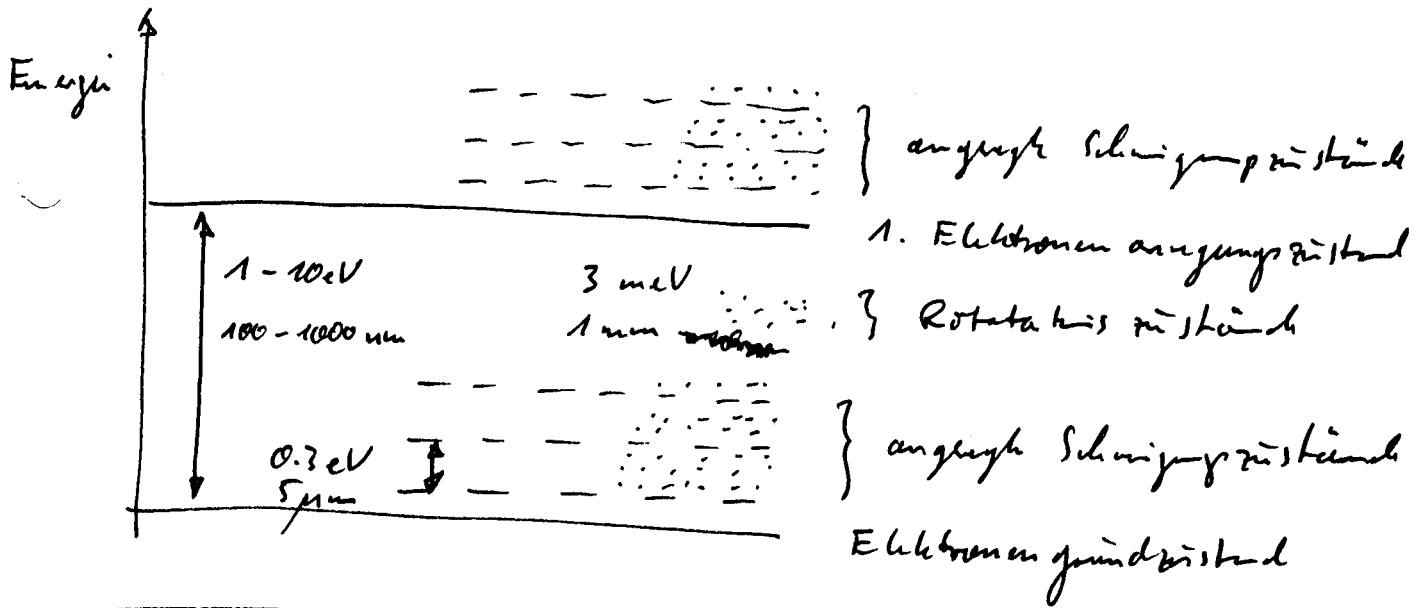 Energie
angeregte Schwingungszustände
1. Elektronenanregungszustand
1 - 10 eV
3 meV
100 - 1000 nm
1 mm
} Rotationszustände
0.3 eV
5 µm
angeregte Schwingungszustände
Elektronengrundzustand